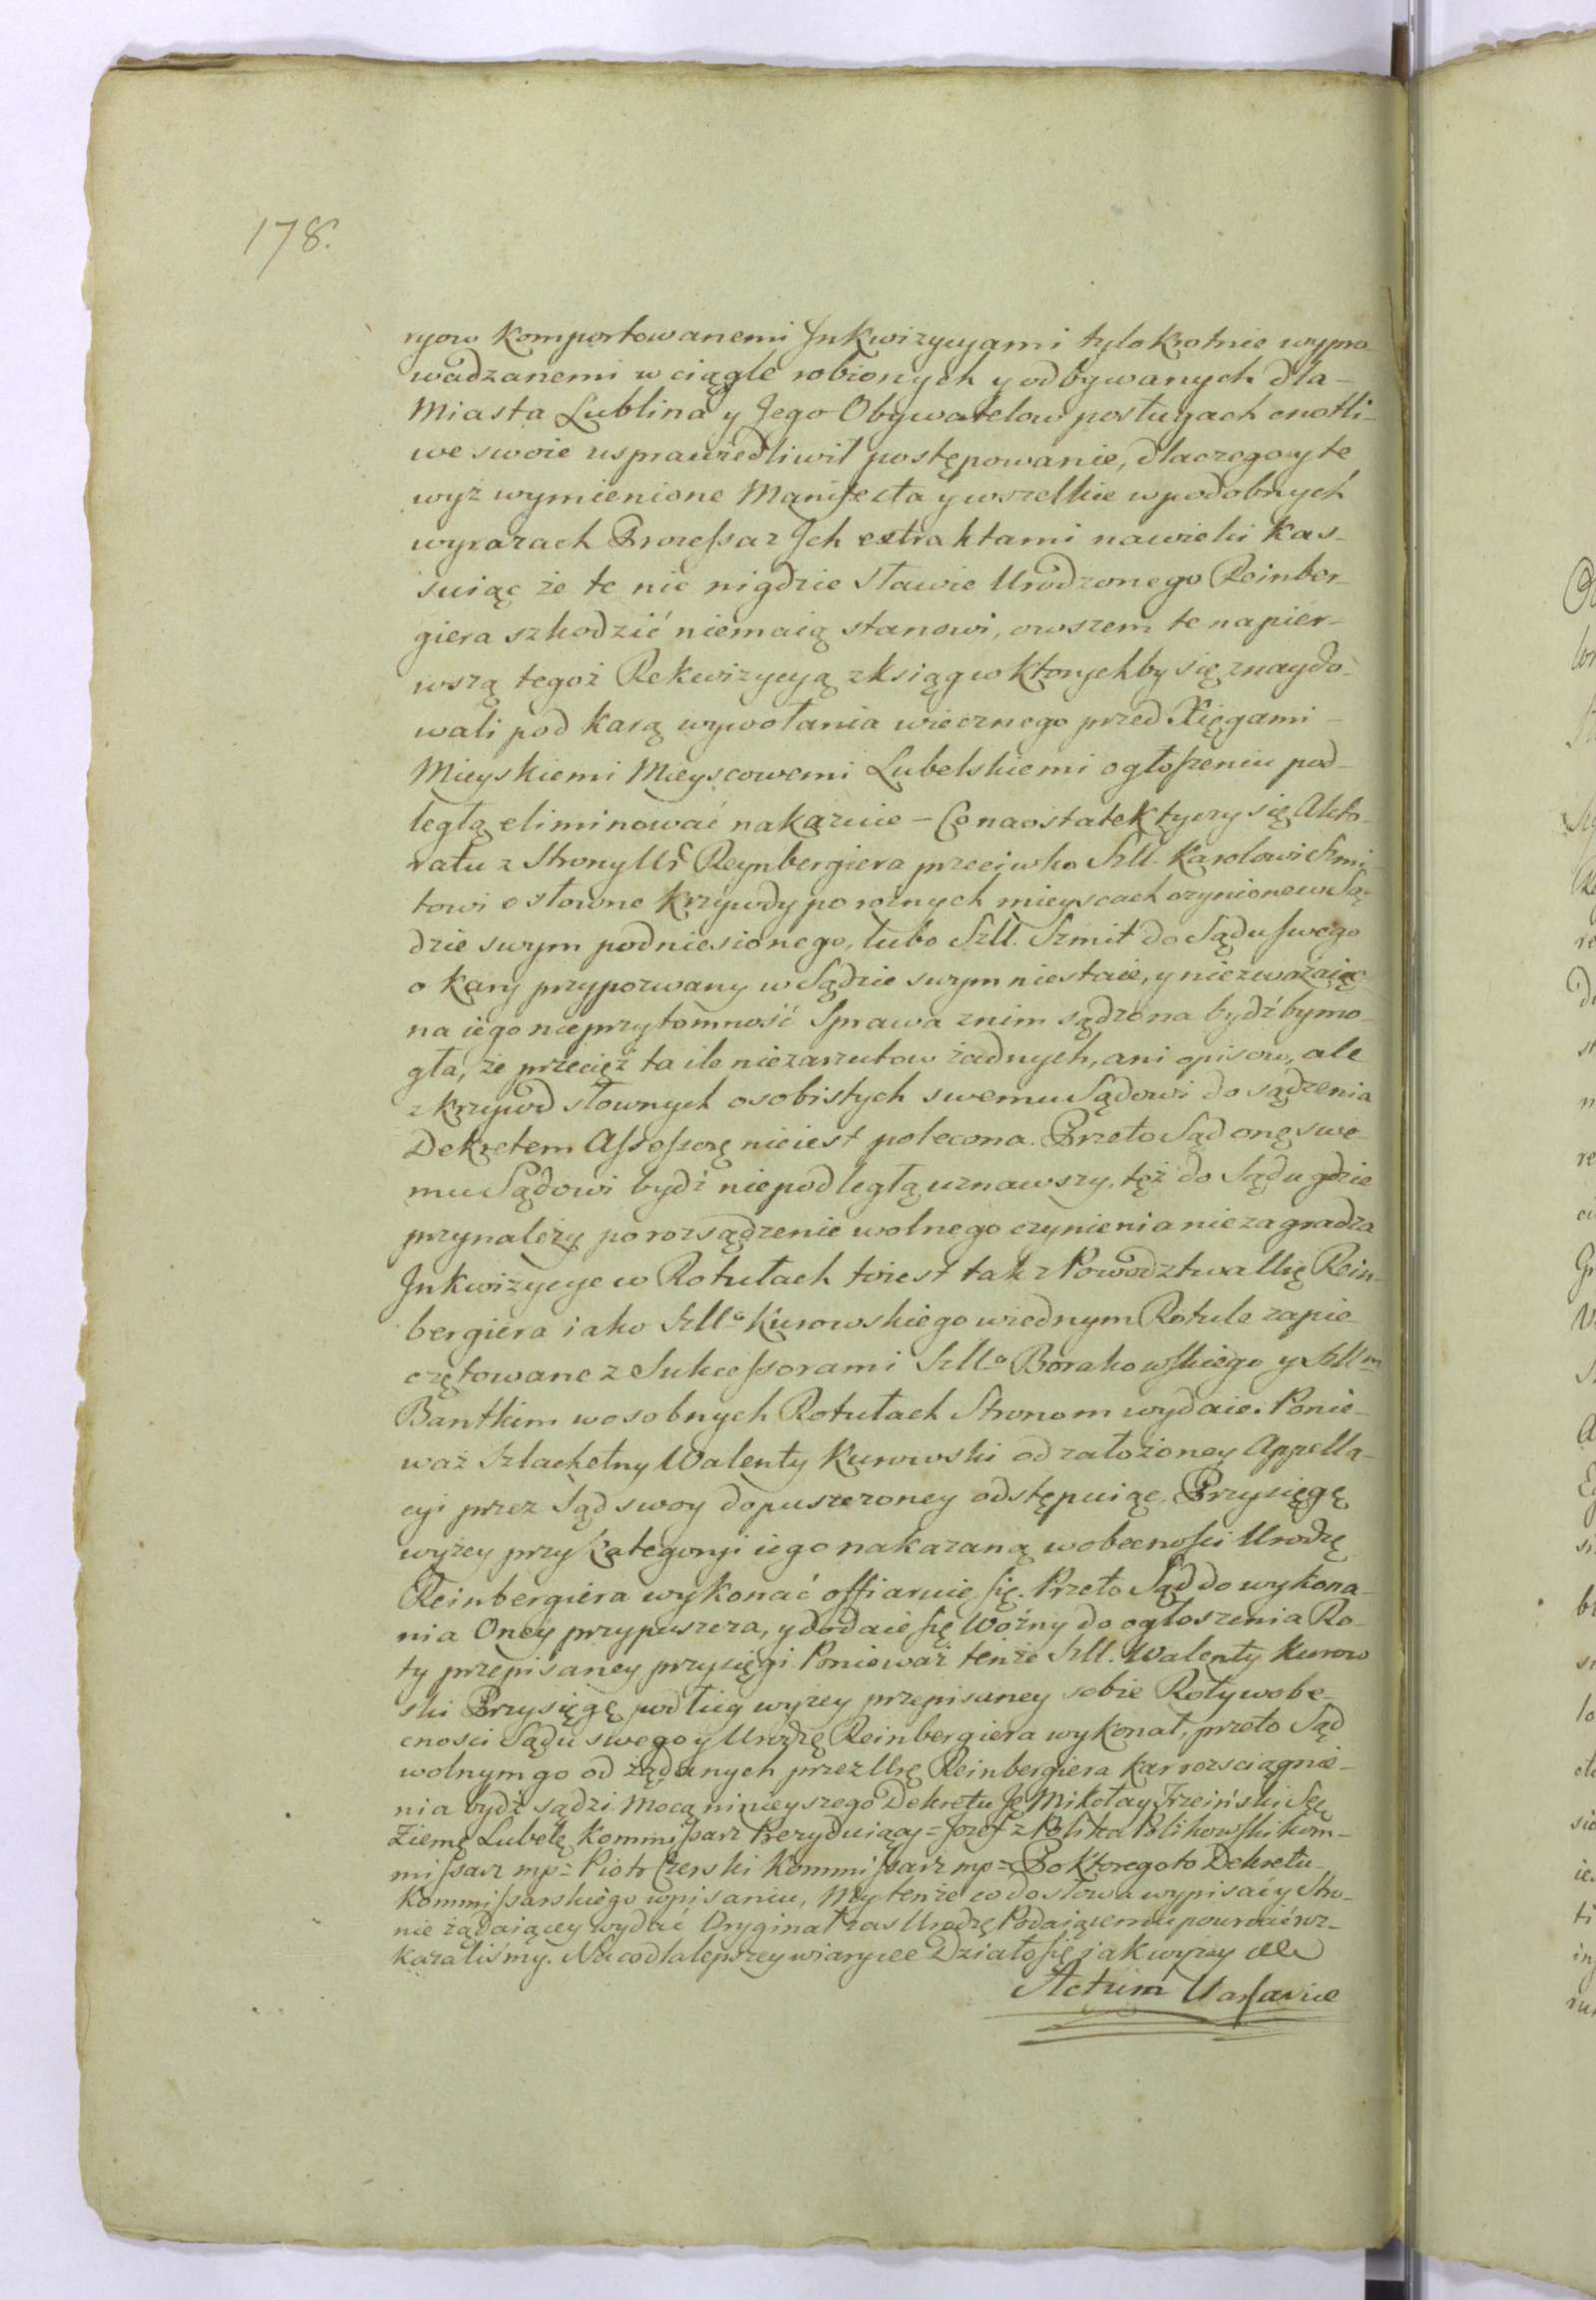 178.
ryow komportowanemi Jnkwizycyami tylokrotnie wypro-
wadzanemi w ciągle robionych y odbywanych dla-
Miasta Lublina y Jego Obywatelow posługach cnotli-
we swoie usprawiedliwił postępowanie, dlaczego y te
wyż wymienione Manifesta y wszelkie w podobnych
wyrazach Processa z Jch extraktami nawieki kas-
suiąc że te nic nigdzie sławie Urodzonego Reinber-
giera szkodzić niemaią stanowi, owszem te napier-
wszą tegoż Rekwizycyą z ksiąg w ktorychby się znaydo-
wali pod karą wywołania wiecznego przed Xięgami-
Mieyskiemi Mieyscowemi Lubelskiemi ogłoszeniu pod-
ległą eliminować nakazuie - Co naostatek tyczy się Akto-
ratu z Strony Ur Reynbergiera przeciwko Szll. Karolowi Szmi-
towi o słowne krzywdy po roznych mieyscach czynione w Są-
dzie swym podniesionego, lubo Szll. Szmit do Sądu swego
o kary przypozwany w Sądzie swym niestaie, y niezwazaiąc
na iego nieprzytomność Sprawa znim sądzona bydź bymo-
gła, że przecięż ta ile niezarzutow żadnych, ani opisow, ale
z krzywd słownych osobistych swemu Sądowi do sądzenia
Dekretem Assesszorę nieiest polecona. Przeto Sąd onę swe-
mu Sądowi bydź niepodległą uznawszy, tęż do Sądu gdzie
przynależy po rozsądzenie wolnego czynienia niezagradza
Jnkwizycye w Rotułach toiest tak z Powodztwa Urę Rein-
bergiera iako Szllo Kurowskiego wiednym Rotule zapie-
czętowane z Sukcessorami Szllo Borakowskiego y Szllm
Bantkim w osobnych Rotułach Stronom wydaie. Ponie-
waż Szlachetny Walenty Kurowski od założoney Appella-
cyi przez Sąd swoy dopuszczoney odstępuiąc Przysięgę
wyżey przy Kategoryi iego nakazaną w obecności Urodzę
Reinbergiera wykonać offiaruie się. Przeto Sąd do wykona-
nia Oney przypuszcza, y dodaie się Woźny do ogłoszenia Ro-
ty przepisaney przysięgi Ponieważ tenże Szll. Walenty Kurow
ski Przysięgę podług wyżey przepisaney sobie Roty wobe-
cności Sądu swego y Urodzę Reinbergiera wykonał, przeto Sąd
wolnym go od żądanych przez Urę Reinbergiera kar rozsciągnie-
nia bydź sądzi mocą ninieyszego Dekretu Ję Mikołay Trzciński Sęę
Ziemę Lubelę Kommissarz Prezyduiący = Jozef z Polika Polikowski kom-
missarz mp = Piotr Czerski Kommissarz mp = Po ktoregoto Dekretu
Kommissarskiego wpisaniu, My tenże co do słowa wypisać y Stro-
nie żądaiącey wydać Oryginał zas Urodzę Podaiącemu powrócić roz-
kazaliśmy. Na co dla lepszey wiary ece Działo się jak wyżey ece
Actum Varsaviæ